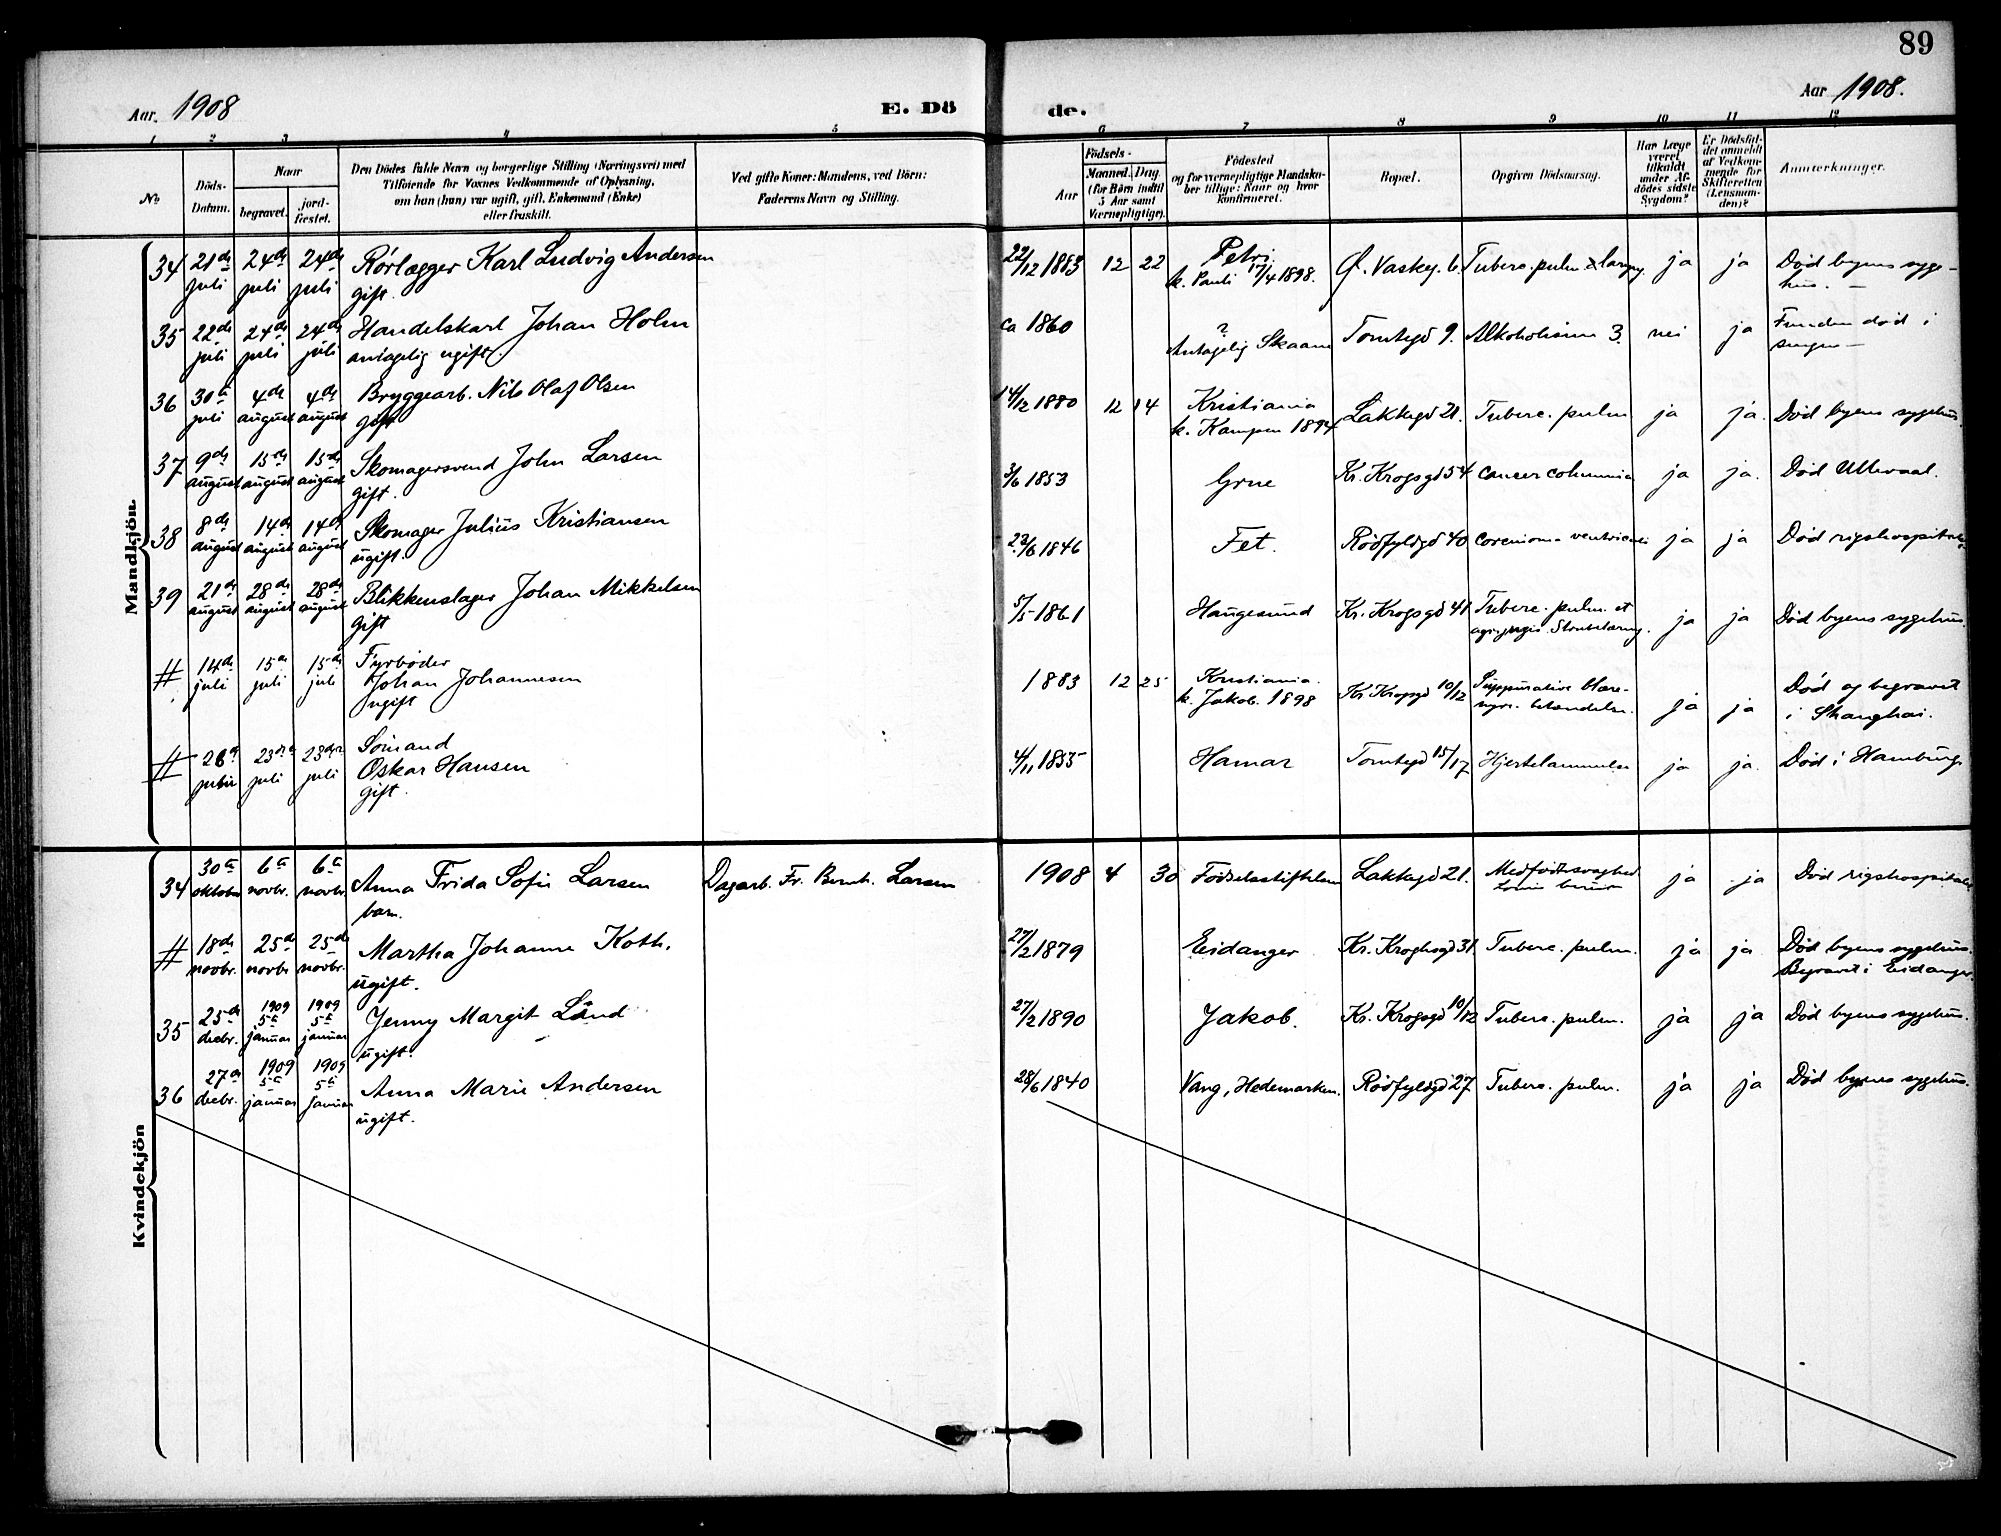 89
Aar. 1908
E. Dö
de.
Aar 1908.
1 2 3 4 5 6 7 8 9 10 11 12
No
Döds-
Datum.
Naar
begravet.
jord-
fæstet.
Den Dödes fulde Navn og borgerlige Stilling (Næringsvei) med
Tilföiende for Voxnes Vedkommende af Oplysning,
om han (hun) var ugift, gift, Enkemand (Enke)
eller fraskilt.
Ved gifte Koner: Mandens, ved Börn:
Faderens Navn og Stilling.
Födsels-
Aar
Maaned. Dag.
(for Börn indtil
5 Aar samt
Værnepligtige).
Födested
og for værnepligtige Mandska-
ber tillige: Naar og hvor
konfirmeret.
Bopæl.
Opgiven Dödsaarsag.
Har Læge
været
tilkaldt
under Af-
dödes sidste
Sygdom?
Er Dödsfal-
det anmeldt
af Vedkom-
mende for
Skifteretten
(Lensman-
den)?
Anmærkninger.
Mandkjön.
34 21de juli 24de juli 24de juli Rørlægger Karl Ludvig Andersen 22/12 1883 12 22 Petri. Ø. Vaskeg. 6. Tuberc. pulm. laryng. ja ja Død byens syge-
gift. k. Pauli 17/4 1898. hus. —
35 22de juli 24de juli 24de juli Handelskarl Johan Holm ca 1860 ? Tomtegd 9. Alkoholisme 3. nei ja Funden død i
antagelig ugift. Antagelig Skaane sengen —
36 30te juli 4de august 4de august Bryggearb. Nils Olaf Olsen 14/12 1880 12 14 Kristiania Lakkegd 21. Tuberc. pulm ja ja. Død byens sygehus.
gift k. Kampen 1894
37 9de august 15de august 15de august Skomagersvend John Larsen 3/6 1853 Grue Kr. Krogsgd 54 cancer columnia ja ja. Død Ullevaal.
gift.
38 8de august 14de august 14de august Skomager Julius Kristiansen 22/6 1846 Fet. Rødfyldgd 40 ventriculi ja ja Død rigshospitalet
ugift.
39 21de august 28de august 28de august Blikkenslager Johan Mikkelsen 5/5 1861 Haugesund Kr. Krogsgd 41. Tuberc. pulm. et ja ja Død byens sygehus.
gift
# 14de juli 15de juli 15de juli Fyrbøder 1883 12 25 Kristiania. Kr Krogsgd 10/12 Suppurative blære- ja ja Død og begravet
Johan Johannesen k. Jakob. 1898 nyre- betændelse. i Shanghai.
ugift
# 23de juli 23de juli Sømand 4/11 1855 Hamar Tomtegd 15/17 Hjertelammelse ja ja. Død i Hamburg
Oskar Hansen
gift.
Kvindekjön
34 30te oktober 6te novbr. 6te novbr. Anna Frida Sofie Larsen Dagarb. Fr. Bernh. Larsen 1908 4 30 Fødselsstiftelsen Lakkegd 21. Medfødt svaghed ja ja Død rigshospitalet
barn.
# 18de novbr. 25de novbr 25de novbr. Martha Johanne Koth. 27/2 1879 Eidanger Kr. Kroghsgd 31. Tuberc. pulm. ja ja Død byens sygehus.
ugift. Begravet i Eidanger.
35 25de decbr. 1909 5te januar 1909 5te januar Jenny Margit Lund 27/2 1890 Jakob. Kr. Krogsgd 10/12 Tuberc. pulm. ja ja Død byens sygehus.
ugift.
36 27de decbr. 1909 5te januar 1909 5te januar Anna Marie Andersen 28/6 1840 Vang, Hedemarken. Rødfyldgd 27 Tuberc. pulm. ja ja Død byens sygehus.
ugift.